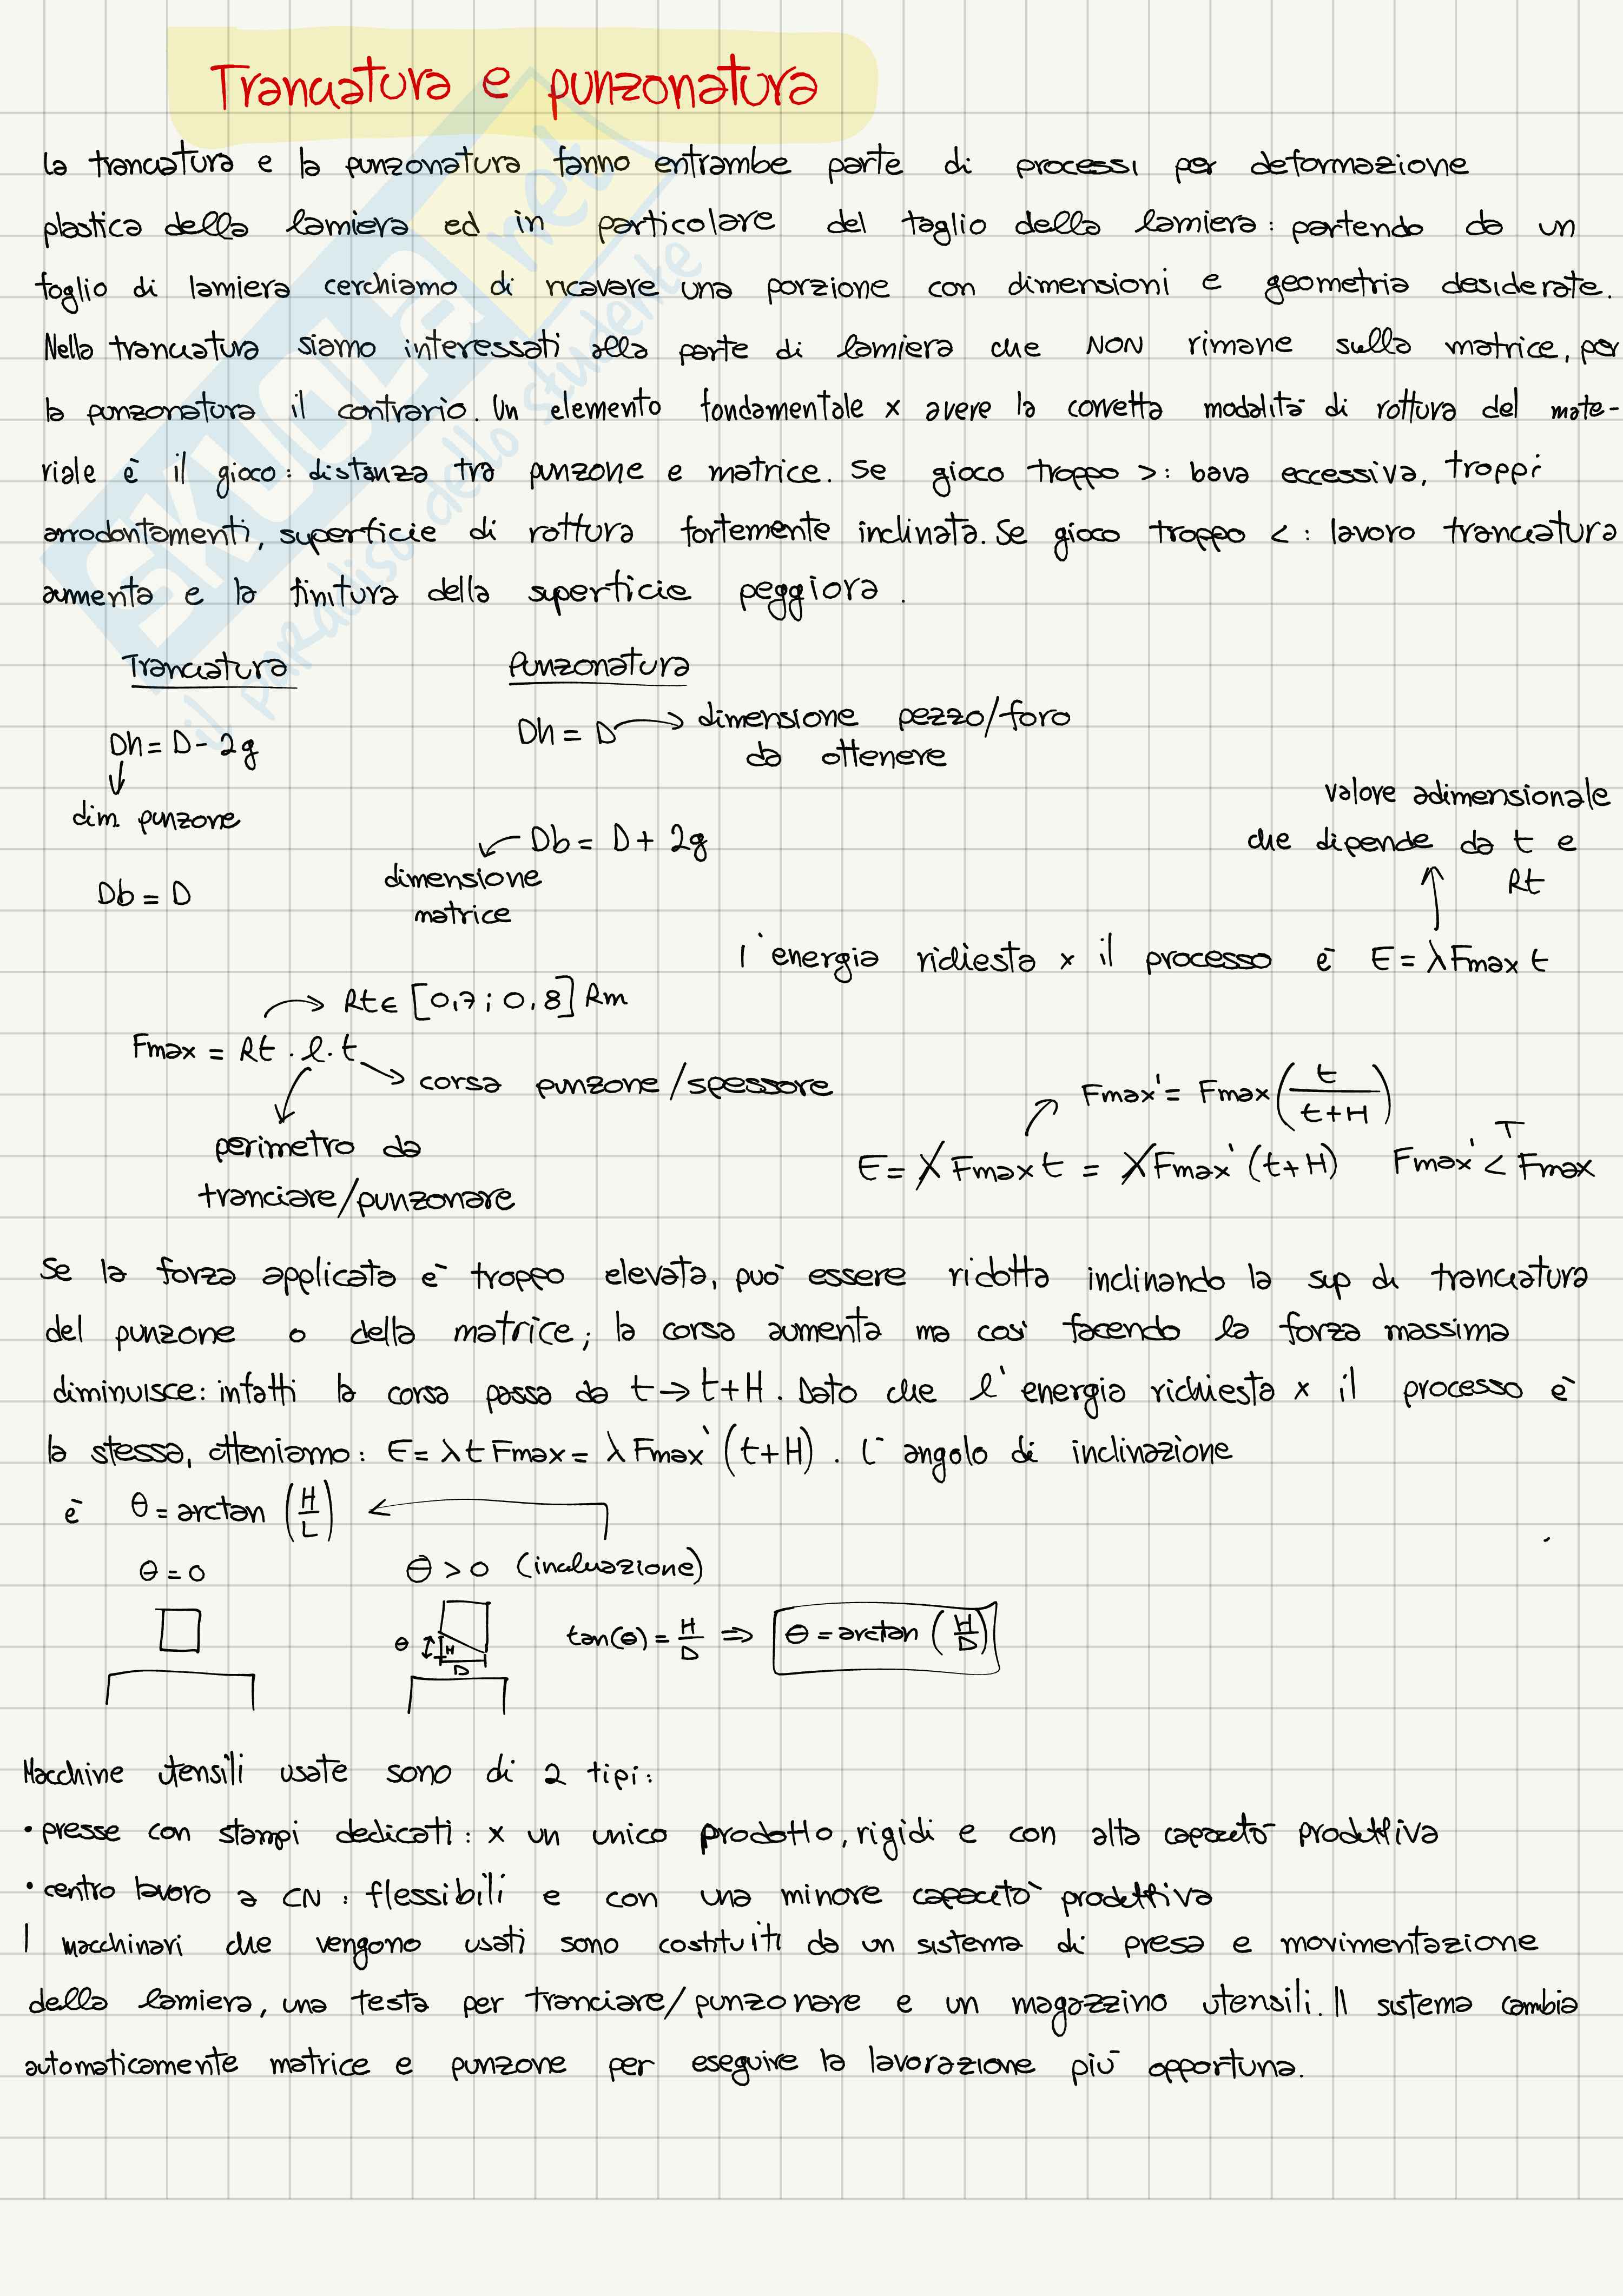 Tranciatura e punzonatura
la tranciatura e la punzonatura fanno entrambe parte di processi per deformazione
plastica della lamiera ed in particolare del taglio della lamiera: partendo da un
foglio di lamiera cerchiamo di ricavare una porzione con dimensioni e geometria desiderate.
Nella tranciatura siamo interessati alla parte di lamiera che NON rimane sulla matrice, per
la punzonatura il contrario. Un elemento fondamentale x avere la corretta modalità di rottura del mate-
riale è il gioco: distanza tra punzone e matrice. Se gioco troppo >: bava eccessiva, troppi
arrodontamenti, superficie di rottura fortemente inclinata. Se gioco troppo <: lavoro tranciatura
aumenta e la finitura della superficie peggiora.
Tranciatura
Punzonatura
Dh = D → dimensione pezzo/foro
da ottenere
Dh = D - 2g
dim. punzone
valore adimensionale
che dipende da t e
Rt
Db = D + 2g
dimensione
matrice
Db = D
l'energia richiesta x il processo è E = λ Fmax t
Rt ∈ [0,7 ; 0,8] Rm
Fmax = Rt · l · t
corsa punzone/spessore
perimetro da
tranciare/punzonare
Fmax' = Fmax (t/(t+H))
E = λ Fmax t = λ Fmax' (t+H) Fmax' < Fmax
Se la forza applicata è troppo elevata, può essere ridotta inclinando la sup di tranciatura
del punzone o della matrice; la corsa aumenta ma così facendo la forza massima
diminuisce: infatti la corsa passa da t → t+H. Dato che l'energia richiesta x il processo è
la stessa, otteniamo: E = λ t Fmax = λ Fmax' (t+H). L'angolo di inclinazione
è θ = arctan (H/L)
θ = 0
θ > 0 (inclinazione)
θ H D
tan(θ) = H/D ⇒ θ = arctan (H/D)
Macchine utensili usate sono di 2 tipi:
• presse con stampi dedicati: x un unico prodotto, rigidi e con alta capacità produttiva
• centro lavoro a CN: flessibili e con una minore capacità produttiva
I macchinari che vengono usati sono costituiti da un sistema di presa e movimentazione
della lamiera, una testa per tranciare/punzonare e un magazzino utensili. Il sistema cambia
automaticamente matrice e punzone per eseguire la lavorazione più opportuna.
SKUOLA.net
il paradiso dello studente